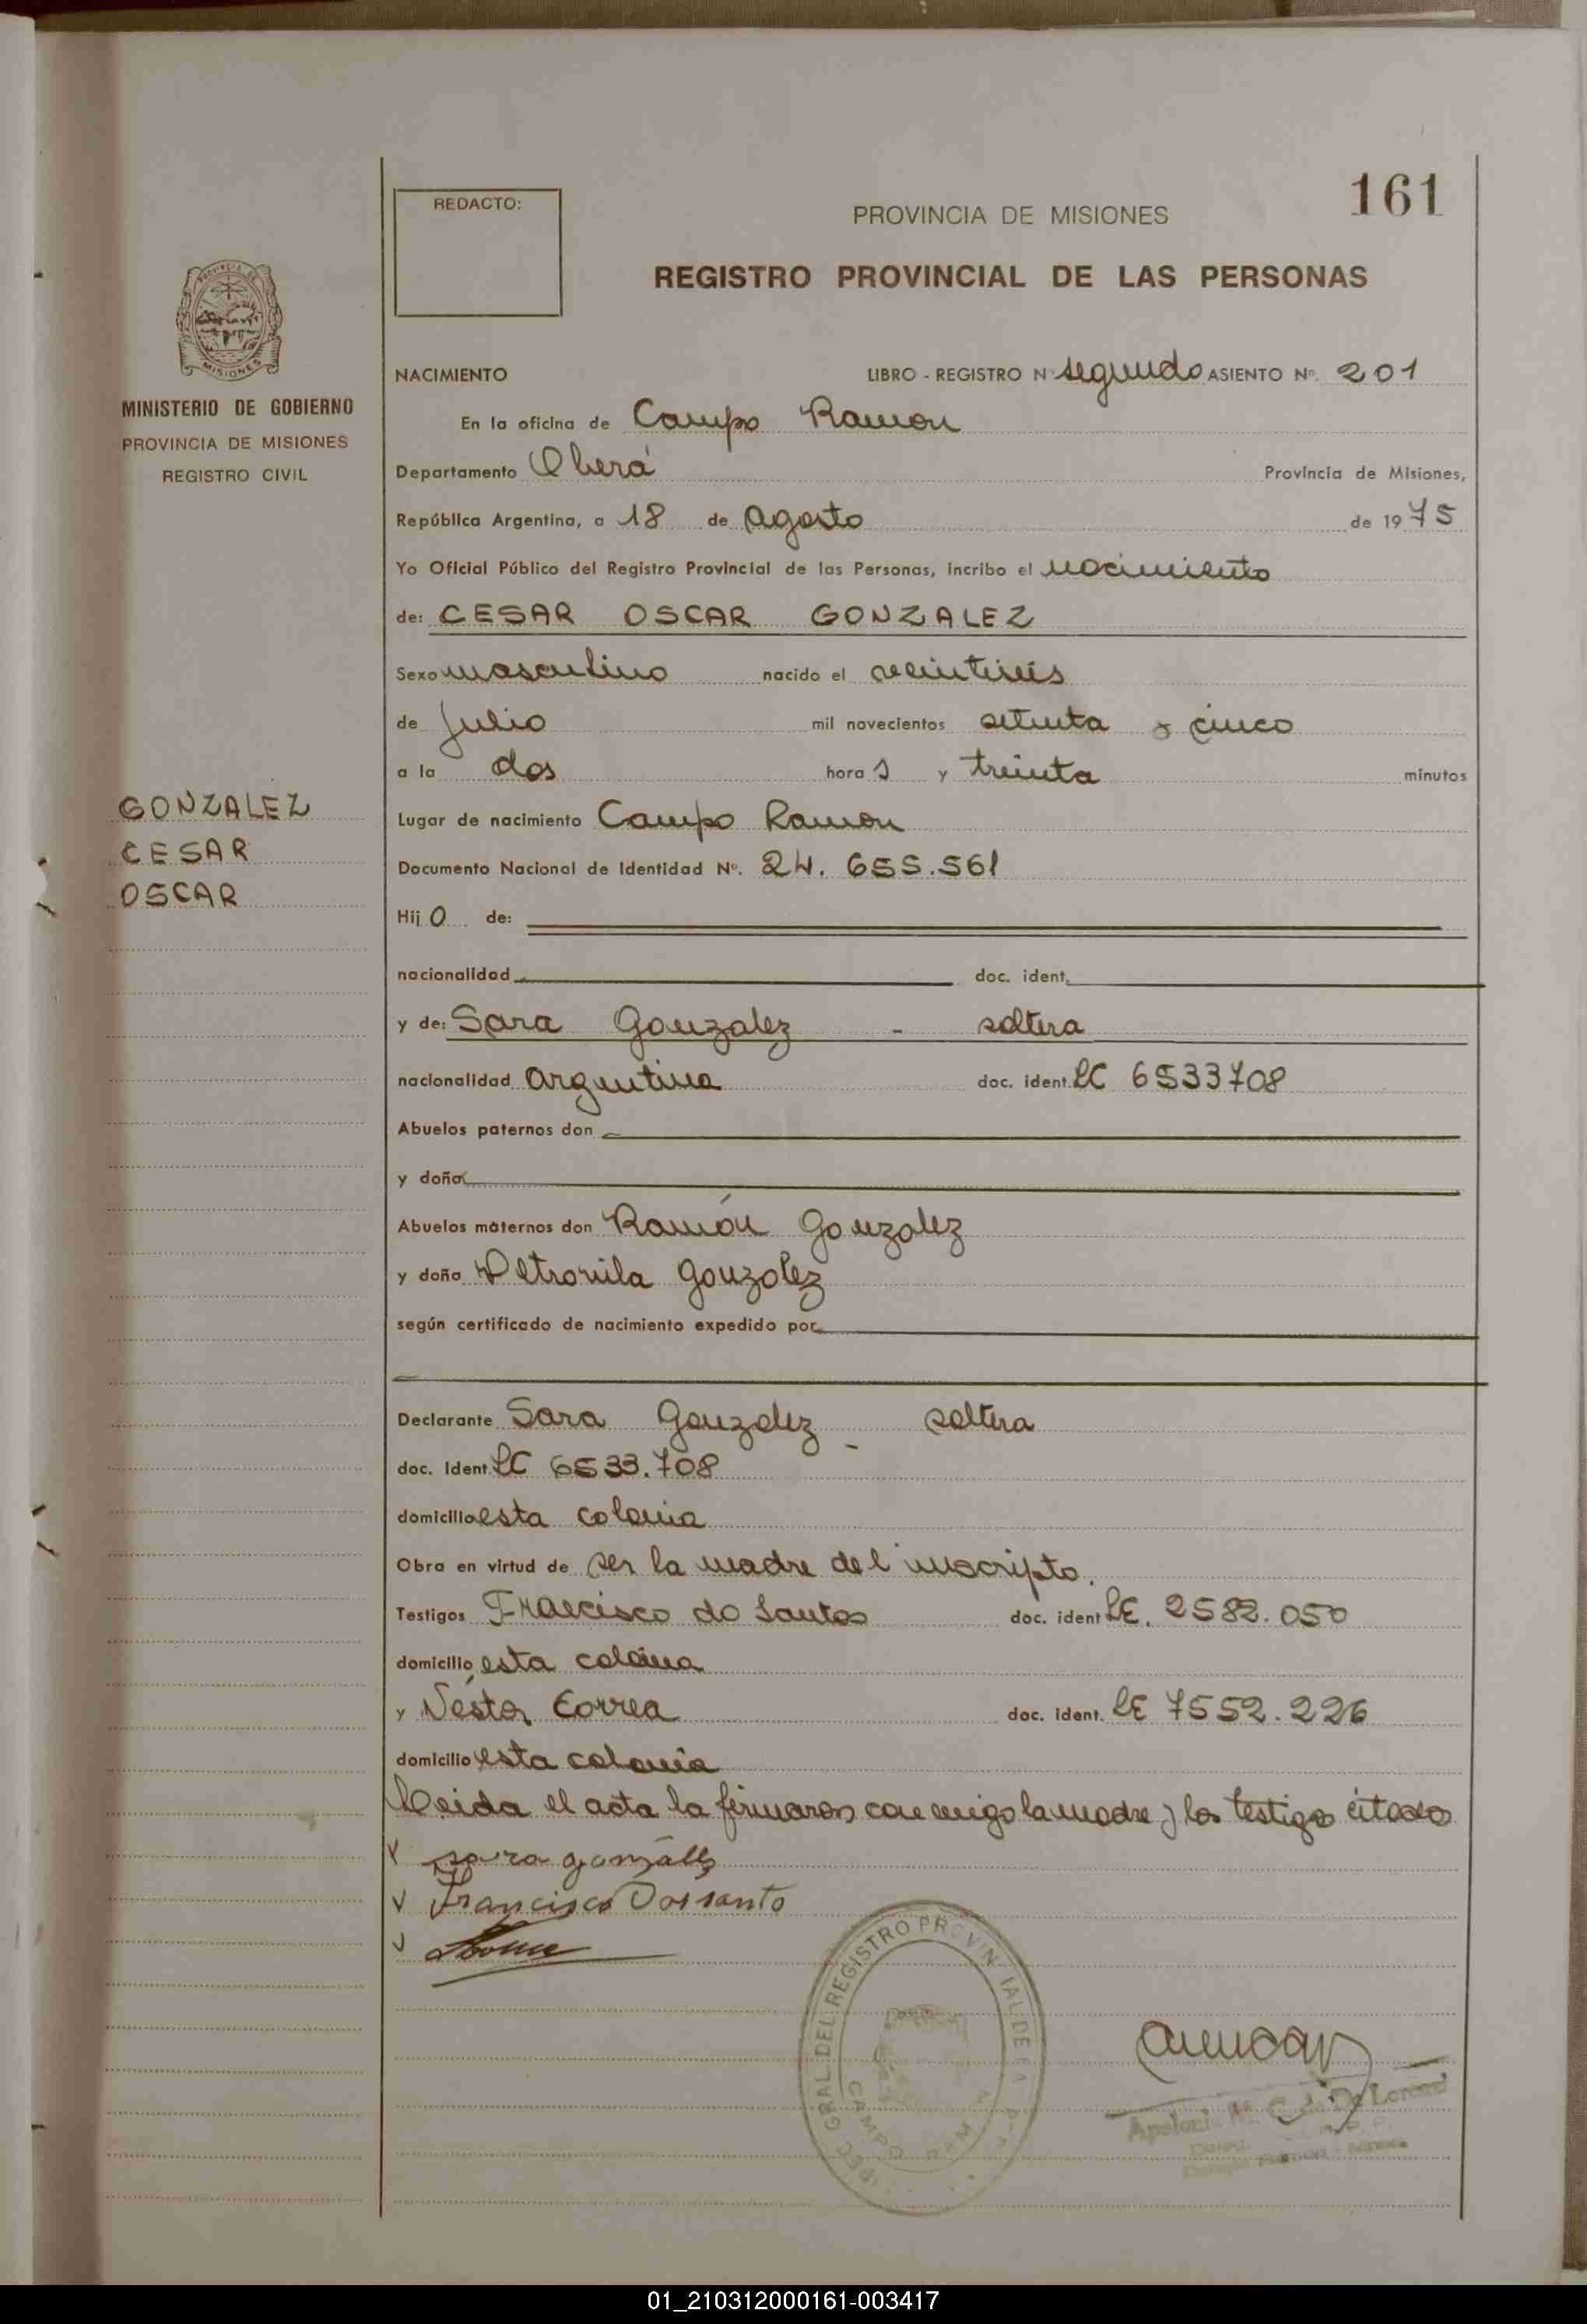 161
REDACTO:
PROVINCIA DE MISIONES
REGISTRO PROVINCIAL DE LAS PERSONAS
PROVINCIA DE
MISIONES
MINISTERIO DE GOBIERNO
PROVINCIA DE MISIONES
REGISTRO CIVIL
NACIMIENTO LIBRO - REGISTRO Nº segundo ASIENTO Nº. 201
En la oficina de Campo Ramon
Departamento Oberá Provincia de Misiones,
República Argentina, a 18 de agosto de 1975
Yo Oficial Público del Registro Provincial de las Personas, incribo el nacimiento
de: CESAR OSCAR GONZALEZ
Sexo masculino nacido el
de Julio mil novecientos setenta y cinco
a la dos hora s y treinta minutos
GONZALEZ
CESAR
OSCAR
Lugar de nacimiento Campo Ramon
Documento Nacional de Identidad Nº. 24.655.561
Hijo de:
nacionalidad doc. ident.
y de: Sara Gonzalez - soltera
nacionalidad argentina doc. ident. LC 6533708
Abuelos paternos don
y doña
Abuelos maternos don Ramón Gonzalez
y doña Petronila Gonzalez
según certificado de nacimiento expedido por
Declarante Sara Gonzalez - soltera
doc. Ident. LC 6533.708
domicilio esta colonia
Obra en virtud de ser la madre del inscripto.
Testigos Francisco do Santos doc. ident LE. 2582.050
domicilio esta colonia
y Néstor Correa doc. ident. LE 7552.226
domicilio esta colonia
Leida el acta la firmaron con migo la madre y los testigos citados
sara gonzález
Francisco Dos santo
GRAL. DEL REGISTRO PROVINCIAL DE LA
CAMPO RAM
01_210312000161-003417